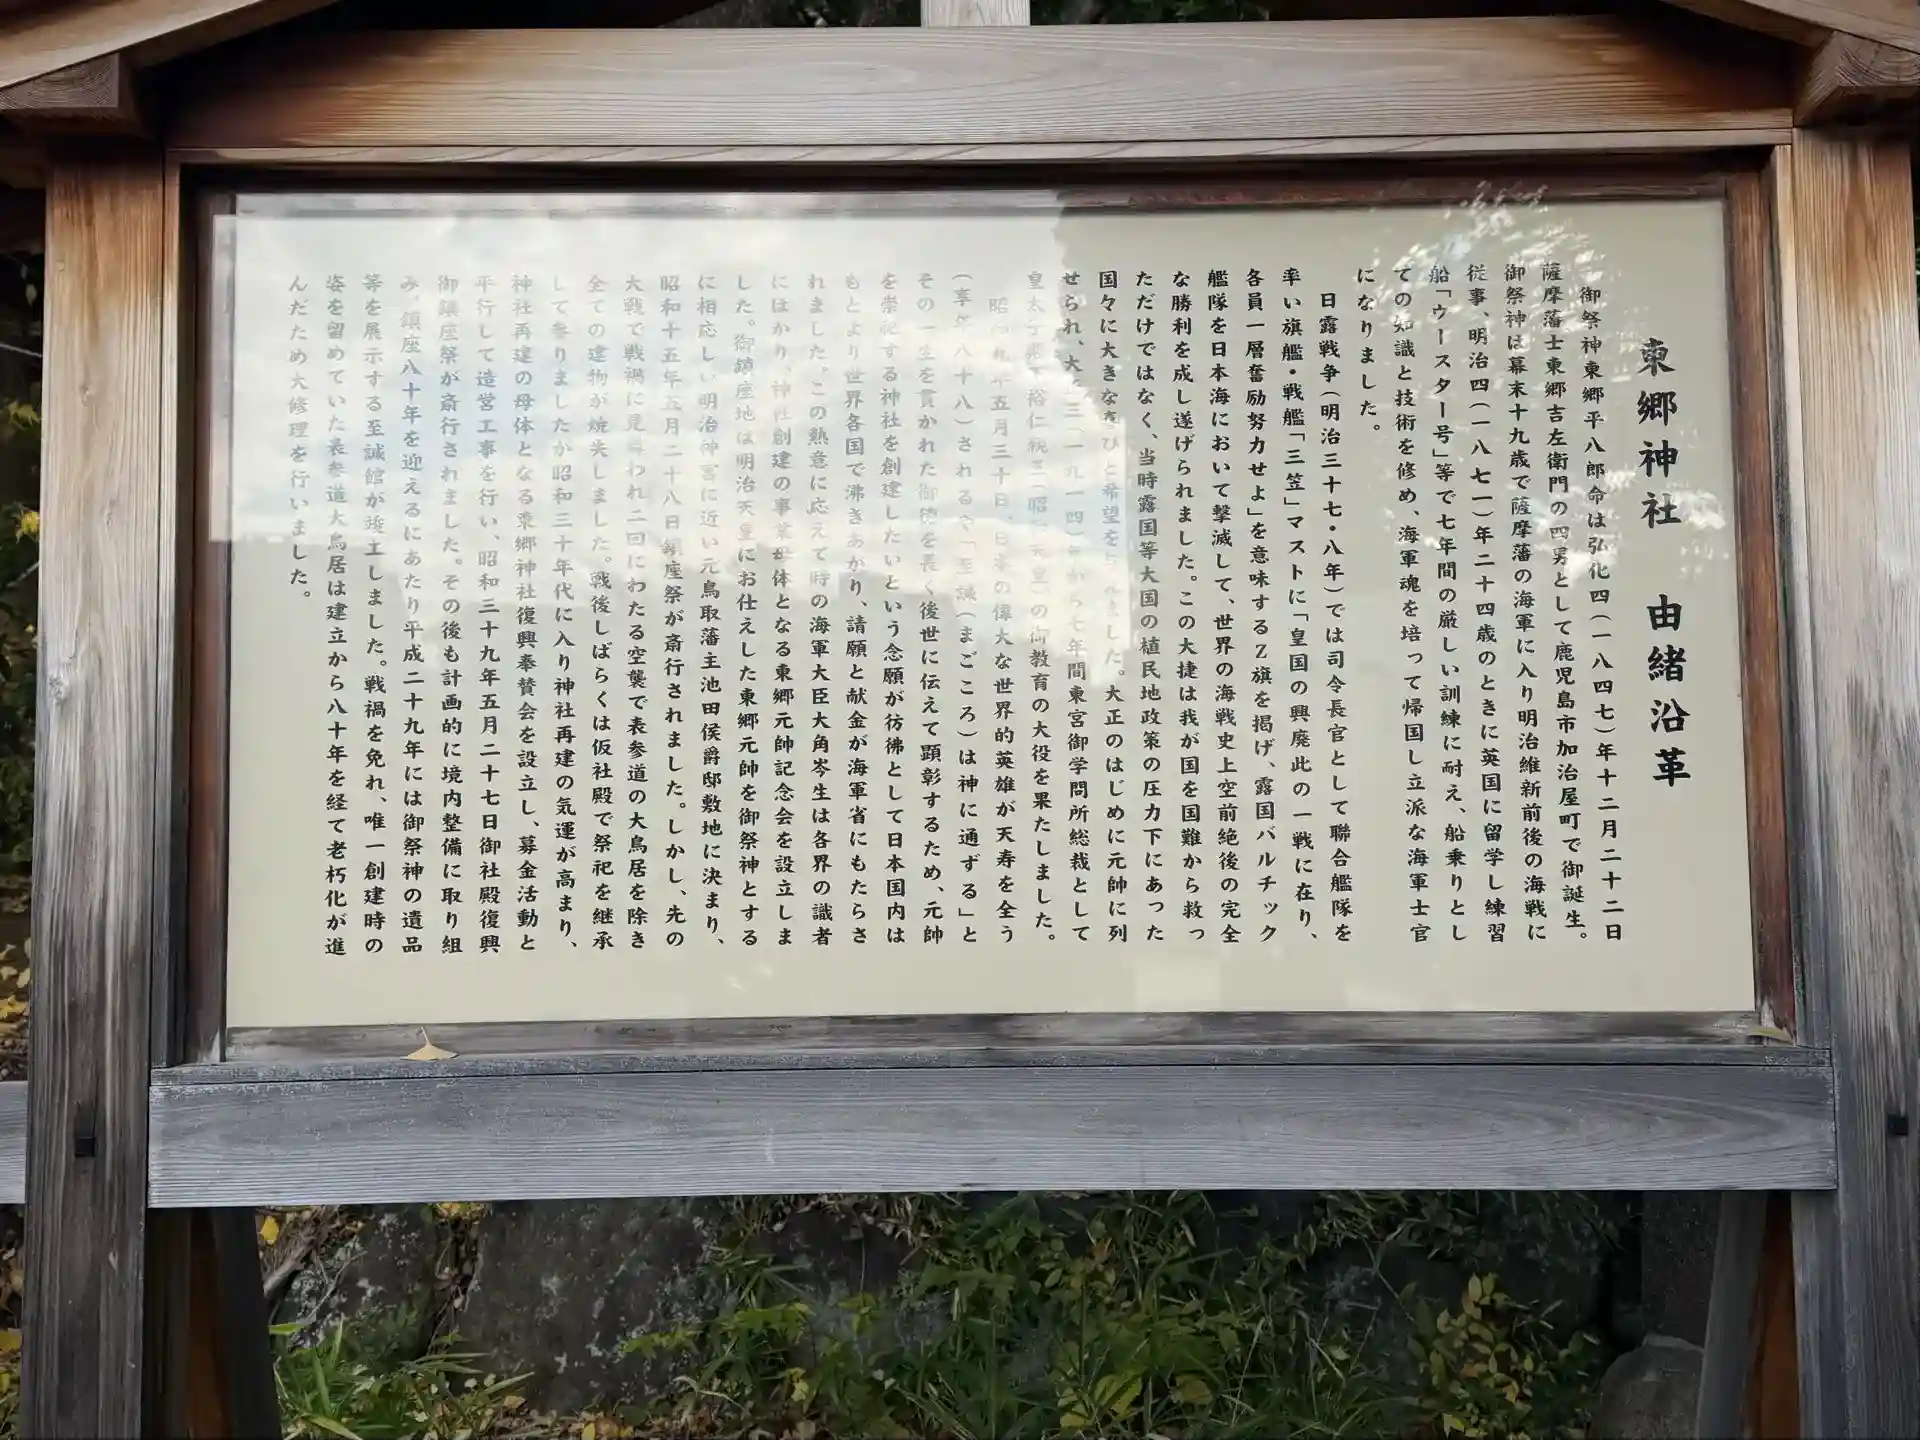 東郷神社 由緒沿革
御祭神東郷平八郎命は弘化四(一八四七)年十二月二十二日
薩摩藩士東郷吉左衛門の四男として鹿児島市加治屋町で御誕生。
御祭神は幕末十九歳で薩摩藩の海軍に入り明治維新前後の海戦に
従事、明治四(一八七一)年二十四歳のときに英国に留学し練習
船「ウースター号」等で七年間の厳しい訓練に耐え、船乗りとし
ての知識と技術を修め、海軍魂を培って帰国し立派な海軍士官
になりました。
日露戦争(明治三十七・八年)では司令長官として聯合艦隊を
率い旗艦・戦艦「三笠」マストに「皇国の興廃此の一戦に在り、
各員一層奮励努力せよ」を意味するZ旗を掲げ、露国バルチック
艦隊を日本海において撃滅して、世界の海戦史上空前絶後の完全
な勝利を成し遂げられました。この大捷は我が国を国難から救っ
ただけではなく、当時露国等大国の植民地政策の圧力下にあった
国々に大きな 希望を ました。大正のはじめに元帥に列
せられ、大 三(一九一四)年から七年間東宮御学問所総裁として
皇太子 裕仁親王(昭 皇)の御教育の大役を果たしました。
昭和九年五月三十日、日本の偉大な世界的英雄が天寿を全う
(享年八十八)される 「至誠(まごころ)は神に通ずる」と
その一生を貫かれた御徳を長く後世に伝えて顕彰するため、元帥
を崇祀する神社を創建したいという念願が彷彿として日本国内は
もとより世界各国で沸きあがり、請願と献金が海軍省にもたらさ
れました。この熱意に応えて時の海軍大臣大角岑生は各界の識者
にはかり、神社創建の事業母体となる東郷元帥記念会を設立しま
した。御鎮座地は明治天皇にお仕えした東郷元帥を御祭神とする
に相応しい明治神宮に近い元鳥取藩主池田侯爵邸敷地に決まり、
昭和十五年五月二十八日鎮座祭が斎行されました。しかし、先の
大戦で戦禍に見舞われ二回にわたる空襲で表参道の大鳥居を除き
全ての建物が焼失しました。戦後しばらくは仮社殿で祭祀を継承
して参りましたが昭和三十年代に入り神社再建の気運が高まり、
神社再建の母体となる東郷神社復興奉賛会を設立し、募金活動と
平行して造営工事を行い、昭和三十九年五月二十七日御社殿復興
御鎮座祭が斎行されました。その後も計画的に境内整備に取り組
み、鎮座八十年を迎えるにあたり平成二十九年には御祭神の遺品
等を展示する至誠館が竣工しました。戦禍を免れ、唯一創建時の
姿を留めていた表参道大鳥居は建立から八十年を経て老朽化が進
んだため大修理を行いました。